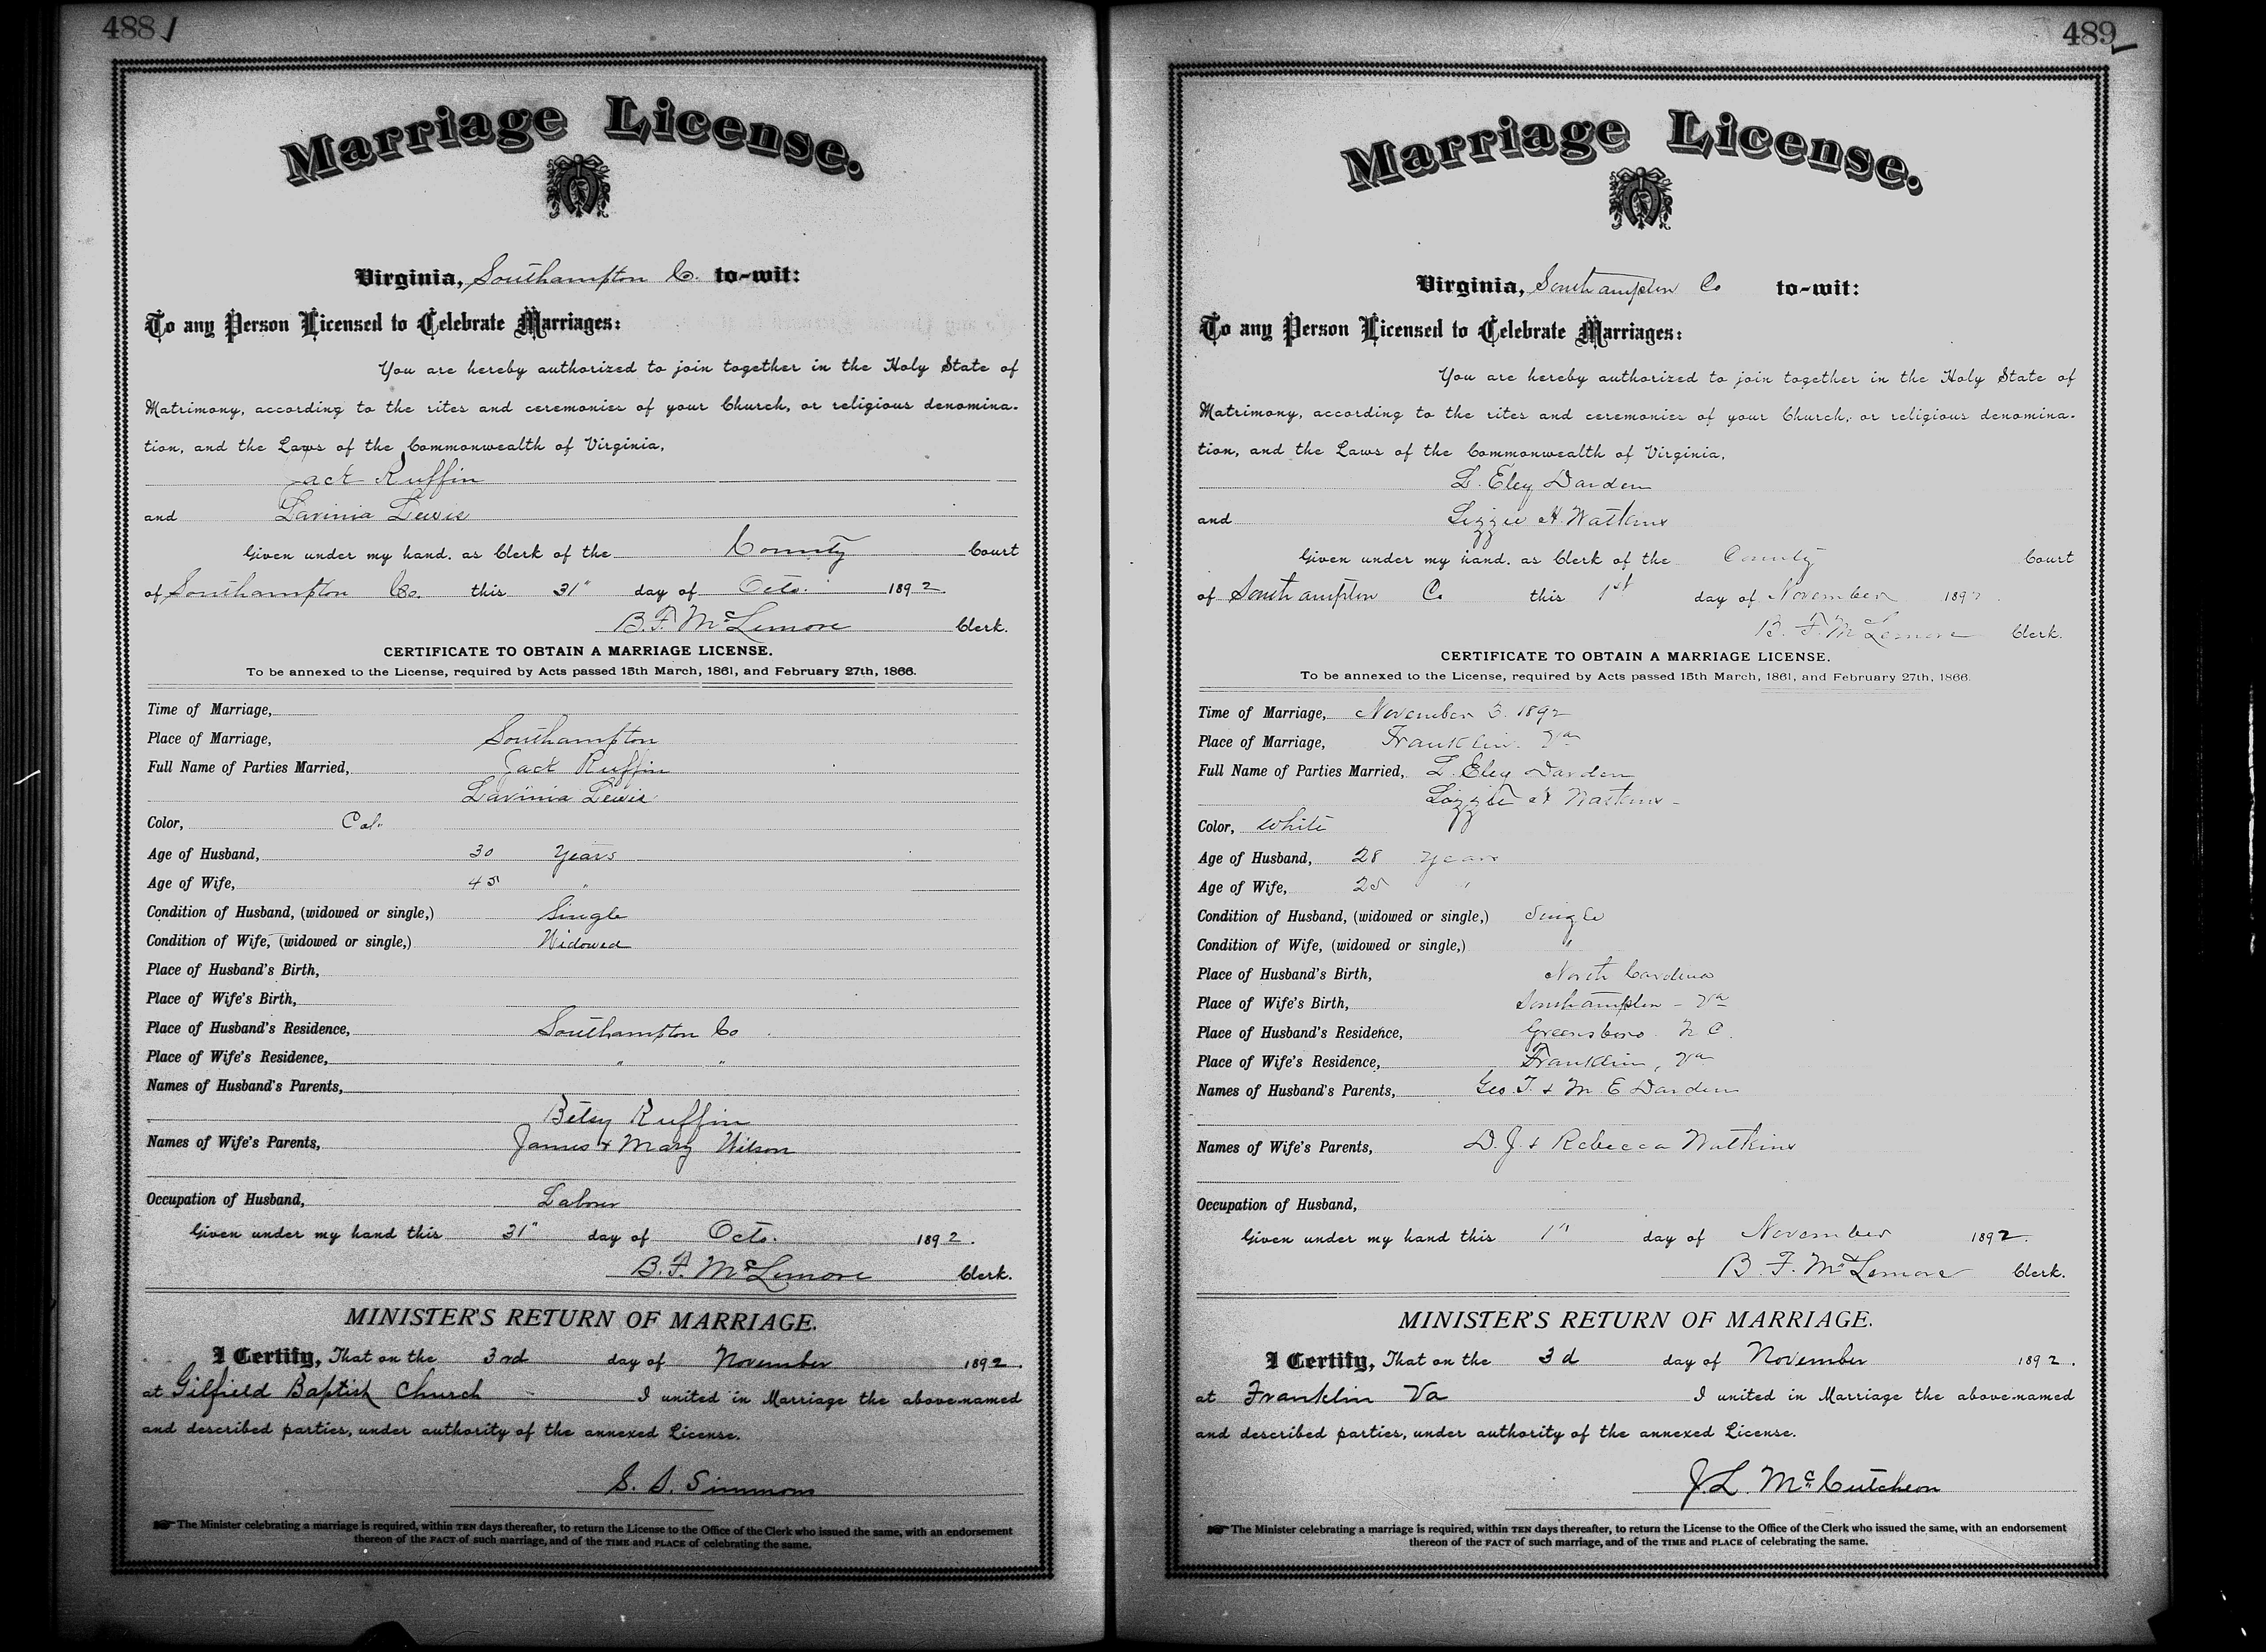 488
Marriage License.
Virginia, Southampton Co. to-wit:
To any Person Licensed to Celebrate Marriages:
You are hereby authorized to join together in the Holy State of
Matrimony, according to the rites and ceremonies of your Church, or religious denomina-
tion, and the Laws of the Commonwealth of Virginia,
Jack Ruffin
and Lavinia Lewis
Given under my hand, as Clerk of the County Court
of Southampton Co. this 31" day of Octo. 1892.
B. F. McLemore Clerk.
CERTIFICATE TO OBTAIN A MARRIAGE LICENSE.
To be annexed to the License, required by Acts passed 15th March, 1861, and February 27th, 1866.
Time of Marriage,
Place of Marriage, Southampton
Full Name of Parties Married, Jack Ruffin
Lavinia Lewis
Color, Col.
Age of Husband, 30 Years
Age of Wife, 45 "
Condition of Husband, (widowed or single,) Single
Condition of Wife, (widowed or single,) Widowed
Place of Husband's Birth,
Place of Wife's Birth,
Place of Husband's Residence, Southampton Co
Place of Wife's Residence, " "
Names of Husband's Parents,
Betsy Ruffin
Names of Wife's Parents, James & Mary Wilson
Occupation of Husband, Labour
Given under my hand this 31" day of Octo. 1892.
B. F. McLemore Clerk.
MINISTER'S RETURN OF MARRIAGE.
I Certify, That on the 3rd day of November 1892.
at Gilfield Baptist Church I united in Marriage the above-named
and described parties, under authority of the annexed License.
S. S. Simmons
The Minister celebrating a marriage is required, within TEN days thereafter, to return the License to the Office of the Clerk who issued the same, with an endorsement
thereon of the FACT of such marriage, and of the TIME and PLACE of celebrating the same.
489
Marriage License.
Virginia, Southampton Co to-wit:
To any Person Licensed to Celebrate Marriages:
You are hereby authorized to join together in the Holy State of
Matrimony, according to the rites and ceremonies of your Church, or religious denomina-
tion, and the Laws of the Commonwealth of Virginia,
L. Eley Darden
and Lizzie H. Watkins
Given under my hand, as Clerk of the County Court
of Southampton Co this 1st day of November 1892
B. F. McLemore Clerk.
CERTIFICATE TO OBTAIN A MARRIAGE LICENSE.
To be annexed to the License, required by Acts passed 15th March, 1861, and February 27th, 1866.
Time of Marriage, November 3. 1892
Place of Marriage, Franklin Va
Full Name of Parties Married, L. Eley Darden
Lizzie H Watkins
Color, White
Age of Husband, 28 years
Age of Wife, 25 "
Condition of Husband, (widowed or single,) Single
Condition of Wife, (widowed or single,) "
Place of Husband's Birth, North Carolina
Place of Wife's Birth, Southampton - Va
Place of Husband's Residence, Greensboro N C.
Place of Wife's Residence, Franklin, Va
Names of Husband's Parents, Geo. T. & M. E Darden
Names of Wife's Parents, D. J. & Rebecca Watkins
Occupation of Husband,
Given under my hand this 1" day of November 1892.
B. F. McLemore Clerk.
MINISTER'S RETURN OF MARRIAGE.
I Certify, That on the 3d day of November 1892.
at Franklin Va I united in Marriage the above-named
and described parties, under authority of the annexed License.
J. L. McCutcheon
The Minister celebrating a marriage is required, within TEN days thereafter, to return the License to the Office of the Clerk who issued the same, with an endorsement
thereon of the FACT of such marriage, and of the TIME and PLACE of celebrating the same.